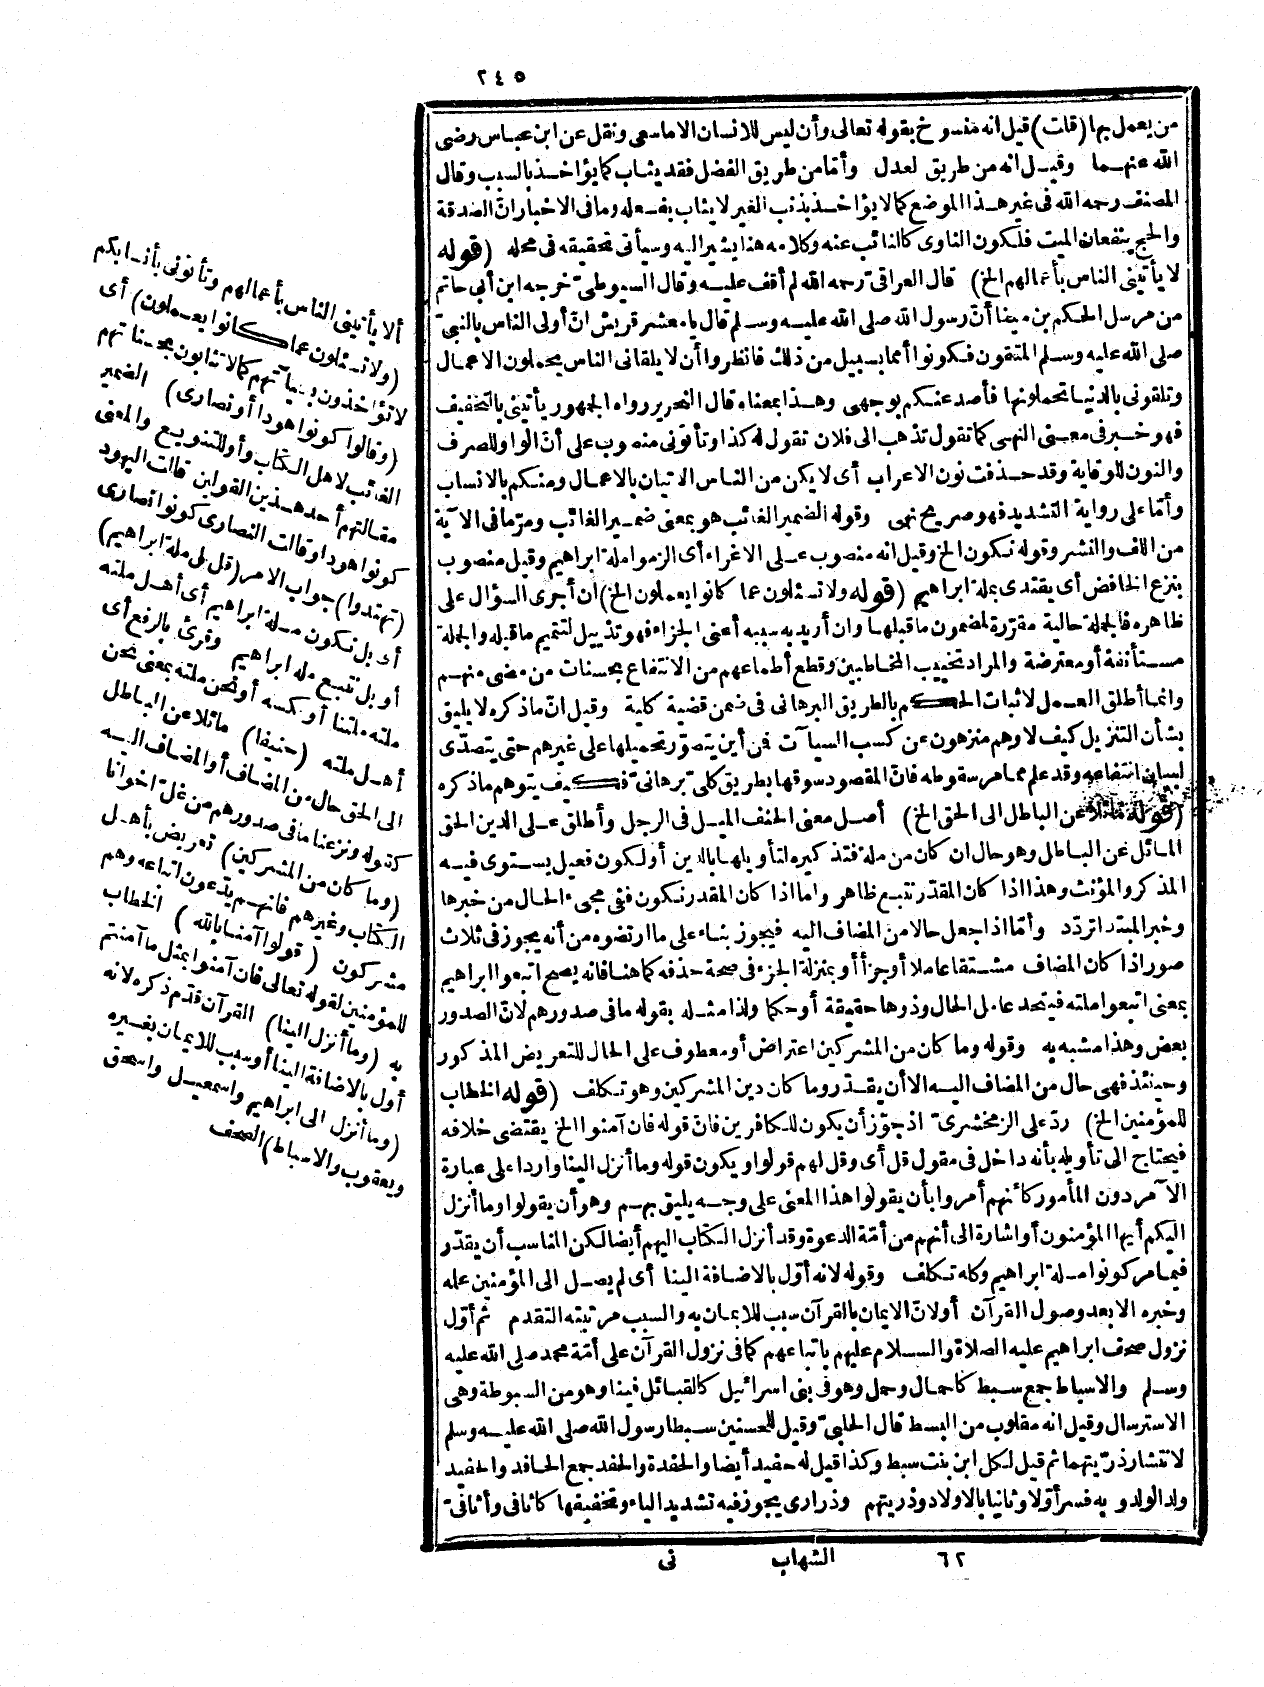 ٢٤٥
من يعمل بها (قلت) قيل انه منسوخ بقوله تعالى وأن ليس للانسان الا ما سعى ونقل عن ابن عباس رضى
الله عنهما وقيل انه من طريق العدل وأما من طريق الفضل فقد يثاب كما يؤاخذ بالسبب وقال
المصنف رحمه الله فى غير هذا الموضع كما لا يؤاخذ بذنب الغير لا يثاب بفعله وما فى الاخبار انّ الصدقة
والحج ينفعان الميت فلكون الناوى كالنائب عنه وكلامه هنا يشير اليه وسيأتى تحقيقه فى محله (قوله
لا يأتينى الناس بأعمالهم الخ) قال العراقى رحمه الله لم أقف عليه وقال السيوطىّ خرجه ابن أبى حاتم
من مرسل الحكم بن مينا أنّ رسول الله صلى الله عليه وسلم قال يا معشر قريش انّ أولى الناس بالنبىّ
صلى الله عليه وسلم المتقون فكونوا أنتم بسبيل من ذلك فانظروا أن لا يلقانى الناس يحملون الاعمال
وتلقونى بالدنيا تحملونها فأصد عنكم بوجهى وهذا بمعناه قال النحرير رواه الجمهور يأتينى بالتخفيف
فهو خبر فى معنى النهى كما تقول تذهب الى فلان تقول له كذا وتأتونى منصوب على أنّ الواو للصرف
والنون للوقاية وقد حذفت نون الاعراب أى لا يكن من الناس الاتيان بالاعمال ومنكم بالانساب
وأمّا على رواية التشديد فهو صريح نهى وقوله الضمير الغائب هو بمعنى ضمير الغائب ومرّ ما فى الآية
من اللف والنشر وقوله نكون الخ وقيل انه منصوب على الاغراء أى الزموا ملة ابراهيم وقيل منصوب
بنزع الخافض أى يقتدى بملة ابراهيم (قوله ولا تسئلون عما كانوا يعملون الخ) ان أجرى السؤال على
ظاهره فالجملة حالية مقرّرة لمضمون ما قبلها وان أريد به سببه أعنى الجزاء فهو تذييل لتتميم ما قبله والجملة
مستأنفة أو معترضة والمراد تخييب المخاطبين وقطع أطماعهم من الانتفاع بحسنات من مضى منهم
وانما أطلق العمل لاثبات الحكم بالطريق البرهانى فى ضمن قضية كلية وقيل انّ ما ذكره لا يليق
بشأن التنزيل كيف لا وهم منزهون عن كسب السيآت فمن أين يتصوّر تحميلها على غيرهم حتى يتصدّى
لبيان انتفاعه وقد علم مما مر سقوطه فانّ المقصود سوقها بطريق كلىّ برهانىّ فكيف يتوهم ما ذكره
(قوله مائلا عن الباطل الى الحق الخ) أصل معنى الحنف الميل فى الرجل وأطلق على الدين الحق
المائل عن الباطل وهو حال ان كان من ملة فتذكيره لتأويلها بالدين أو لكون فعيل يستوى فيه
المذكر والمؤنث وهذا اذا كان المقدّر نتبع ظاهر واما اذا كان المقدر نكون ففى مجىء الحال من خبرها
وخبر المبتدا تردّد وأمّا اذا جعل حالا من المضاف اليه فيجوز بناء على ما ارتضوه من أنه يجوز فى ثلاث
صور اذا كان المضاف مشتقا عاملا أو جزأ أو بمنزلة الجزء فى صحة حذفه كما هنا فانه يصح اتبعوا ابراهيم
بمعنى اتبعوا ملته فيتحد عامل الحال وذوها حقيقة أو حكما ولذا مثله بقوله ما فى صدورهم لانّ الصدور
بعض وهذا مشبه به وقوله وما كان من المشركين اعتراض أو معطوف على الحال للتعريض المذكور
وحينئذ فهى حال من المضاف اليه الا أن يقدّر وما كان دين المشركين وهو تكلف (قوله الخطاب
للمؤمنين الخ) ردّ على الزمخشرىّ اذ جوّز أن يكون للكافرين فانّ قوله فان آمنوا الخ يقتضى خلافه
فيحتاج الى تأويله بأنه داخل فى مقول قل أى وقل لهم قولوا ويكون قوله وما أنزل الينا واردا على عبارة
الآمر دون المأمور كأنهم أمروا بأن يقولوا هذا المعنى على وجه يليق بهم وهو أن يقولوا وما أنزل
اليكم أيها المؤمنون أو اشارة الى أنهم من أمّة الدعوة وقد أنزل الكتاب اليهم أيضا لكن المناسب أن يقدّر
فيما مر كونوا ملة ابراهيم وكله تكلف وقوله لانه أوّل بالاضافة الينا أى لم يصل الى المؤمنين علمه
وخبره الا بعد وصول القرآن أو لانّ الايمان بالقرآن سبب للايمان به والسبب مرتبته التقدم ثم أوّل
نزول صحف ابراهيم عليه الصلاة والسلام عليهم باتباعهم كما فى نزول القرآن على أمّة محمد صلى الله عليه
وسلم والاسباط جمع سبط كاحمال وحمل وهو فى بنى اسرائيل كالقبائل فينا وهو من السبوطة وهى
الاسترسال وقيل انه مقلوب من البسط قال الحلبىّ وقيل للحسنين سبطا رسول الله صلى الله عليه وسلم
لانتشار ذرّيتهما ثم قيل لكل ابن بنت سبط وكذا قيل له حفيد أيضا والحفدة والحفد جمع الحافد والحفيد
ولد الولد وبه فسر أوّلا وثانيا بالاولاد وذريتهم وذرارى يجوز فيه تشديد الياء وتخفيفها كاثافى وأثافىّ
ألا يأتينى الناس بأعمالهم وتأتونى بأنسابكم
(ولا تسئلون عما كانوا يعملون) أى
لا تؤاخذون بسيآتهم كما لا تثابون بحسناتهم
(وقالوا كونوا هودا أو نصارى) الضمير
الغائب لاهل الكتاب وأو للتنويع والمعنى
مقالتهم أحد هذين القولين قالت اليهود
كونوا هودا وقالت النصارى كونوا نصارى
(تهتدوا) جواب الامر (قل بل ملة ابراهيم)
أى بل نكون ملة ابراهيم أى أهل ملته
أو بل نتبع ملة ابراهيم وقرئ بالرفع أى
ملته ملتنا أو عكسه أو نحن ملته بمعنى نحن
أهل ملته (حنيفا) مائلا عن الباطل
الى الحق حال من المضاف أو المضاف اليه
كقوله ونزعنا ما فى صدورهم من غلّ اخوانا
(وما كان من المشركين) تعريض بأهل
الكتاب وغيرهم فانهم يدّعون اتباعه وهم
مشركون (قولوا آمنا بالله) الخطاب
للمؤمنين لقوله تعالى فان آمنوا بمثل ما آمنتم
به (وما أنزل الينا) القرآن قدّم ذكره لانه
أول بالاضافة الينا أو سبب للايمان بغيره
(وما أنزل الى ابراهيم واسمعيل واسحق
ويعقوب والاسباط) الصحف
٦٢ الشهاب نى